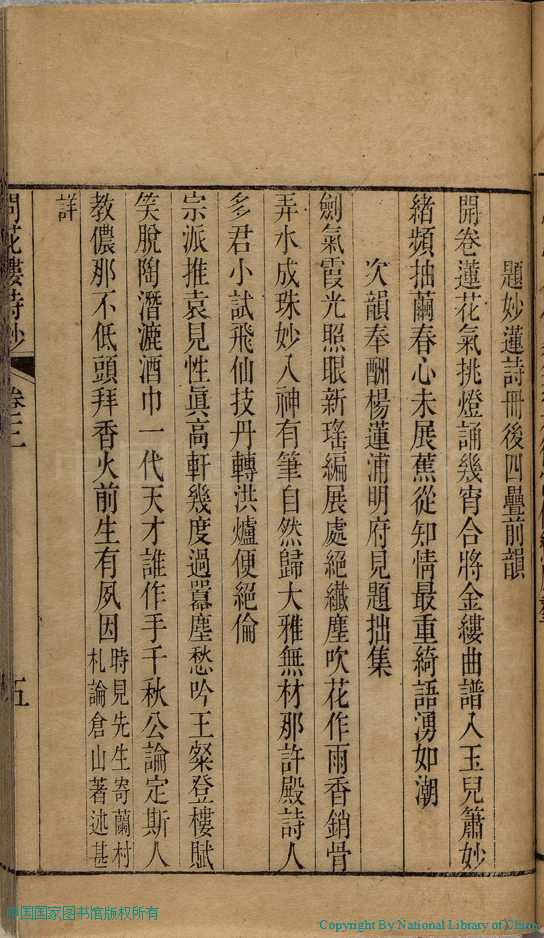 題妙蓮詩冊後四疊前韻
開卷蓮花氣挑燈誦幾宵合將金縷曲譜入玉兒簫妙
緒頻抽繭春心未展蕉從知情最重綺語湧如潮
次韻奉酬楊蓮浦明府見題拙集
劍氣霞光照眼新瑤編展處絕纖塵吹花作雨香銷骨
弄水成珠妙入神有筆自然歸大雅無材那許殿詩人
多君小試飛仙技丹轉洪爐便絕倫
宗派推袁見性眞高軒幾度過囂塵愁吟王粲登樓賦
笑脫陶潛漉酒巾一代天才誰作手千秋公論定斯人
教儂那不低頭拜香火前生有夙因時見先生寄蘭村
札論倉山著述甚
詳
問花樓詩鈔 卷三 五
中国国家图书馆版权所有
Copyright By National Library of China